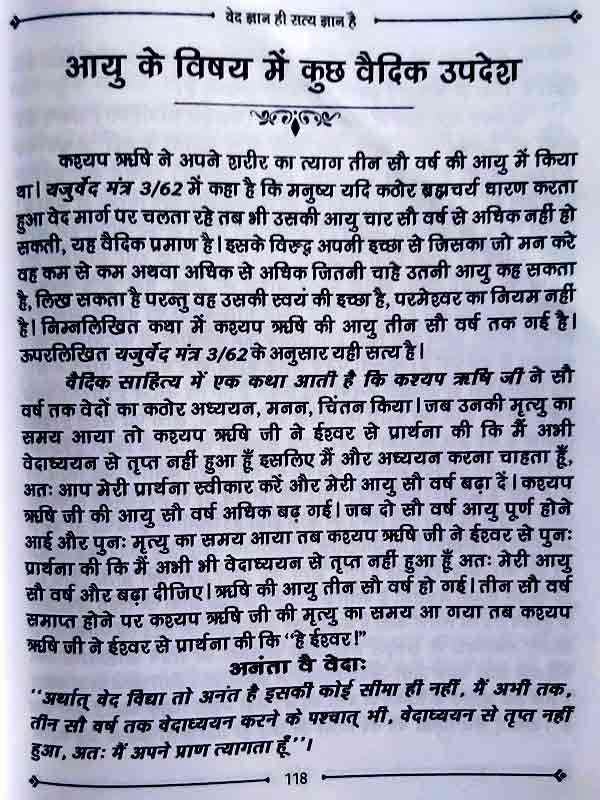 वेद ज्ञान ही सत्य ज्ञान है
आयु के विषय में कुछ वैदिक उपदेश
कश्यप ऋषि ने अपने शरीर का त्याग तीन सौ वर्ष की आयु में किया
था। यजुर्वेद मंत्र 3/62 में कहा है कि मनुष्य यदि कठोर ब्रह्मचर्य धारण करता
हुआ वेद मार्ग पर चलता रहे तब भी उसकी आयु चार सौ वर्ष से अधिक नहीं हो
सकती, यह वैदिक प्रमाण है। इसके विरुद्ध अपनी इच्छा से जिसका जो मन करे
वह कम से कम अथवा अधिक से अधिक जितनी चाहे उतनी आयु कह सकता
है, लिख सकता है परन्तु वह उसकी स्वयं की इच्छा है, परमेश्वर का नियम नहीं
है। निम्नलिखित कथा में कश्यप ऋषि की आयु तीन सौ वर्ष तक गई है।
ऊपरलिखित यजुर्वेद मंत्र 3/62 के अनुसार यही सत्य है।
वैदिक साहित्य में एक कथा आती है कि कश्यप ऋषि जी ने सौ
वर्ष तक वेदों का कठोर अध्ययन, मनन, चिंतन किया। जब उनकी मृत्यु का
समय आया तो कश्यप ऋषि जी ने ईश्वर से प्रार्थना की कि मैं अभी
वेदाध्ययन से तृप्त नहीं हुआ हूँ इसलिए मैं और अध्ययन करना चाहता हूँ,
अतः आप मेरी प्रार्थना स्वीकार करें और मेरी आयु सौ वर्ष बढ़ा दें। कश्यप
ऋषि जी की आयु सौ वर्ष अधिक बढ़ गई। जब दो सौ वर्ष आयु पूर्ण होने
आई और पुनः मृत्यु का समय आया तब कश्यप ऋषि जी ने ईश्वर से पुनः
प्रार्थना की कि मैं अभी भी वेदाध्ययन से तृप्त नहीं हुआ हूँ अतः मेरी आयु
सौ वर्ष और बढ़ा दीजिए। ऋषि की आयु तीन सौ वर्ष हो गई। तीन सौ वर्ष
समाप्त होने पर कश्यप ऋषि जी की मृत्यु का समय आ गया तब कश्यप
ऋषि जी ने ईश्वर से प्रार्थना की कि “हे ईश्वर!”
अनंता वै वेदाः
‘‘अर्थात् वेद विद्या तो अनंत है इसकी कोई सीमा ही नहीं, मैं अभी तक,
तीन सौ वर्ष तक वेदाध्ययन करने के पश्चात् भी, वेदाध्ययन से तृप्त नहीं
हुआ, अतः मैं अपने प्राण त्यागता हूँ’’।
118